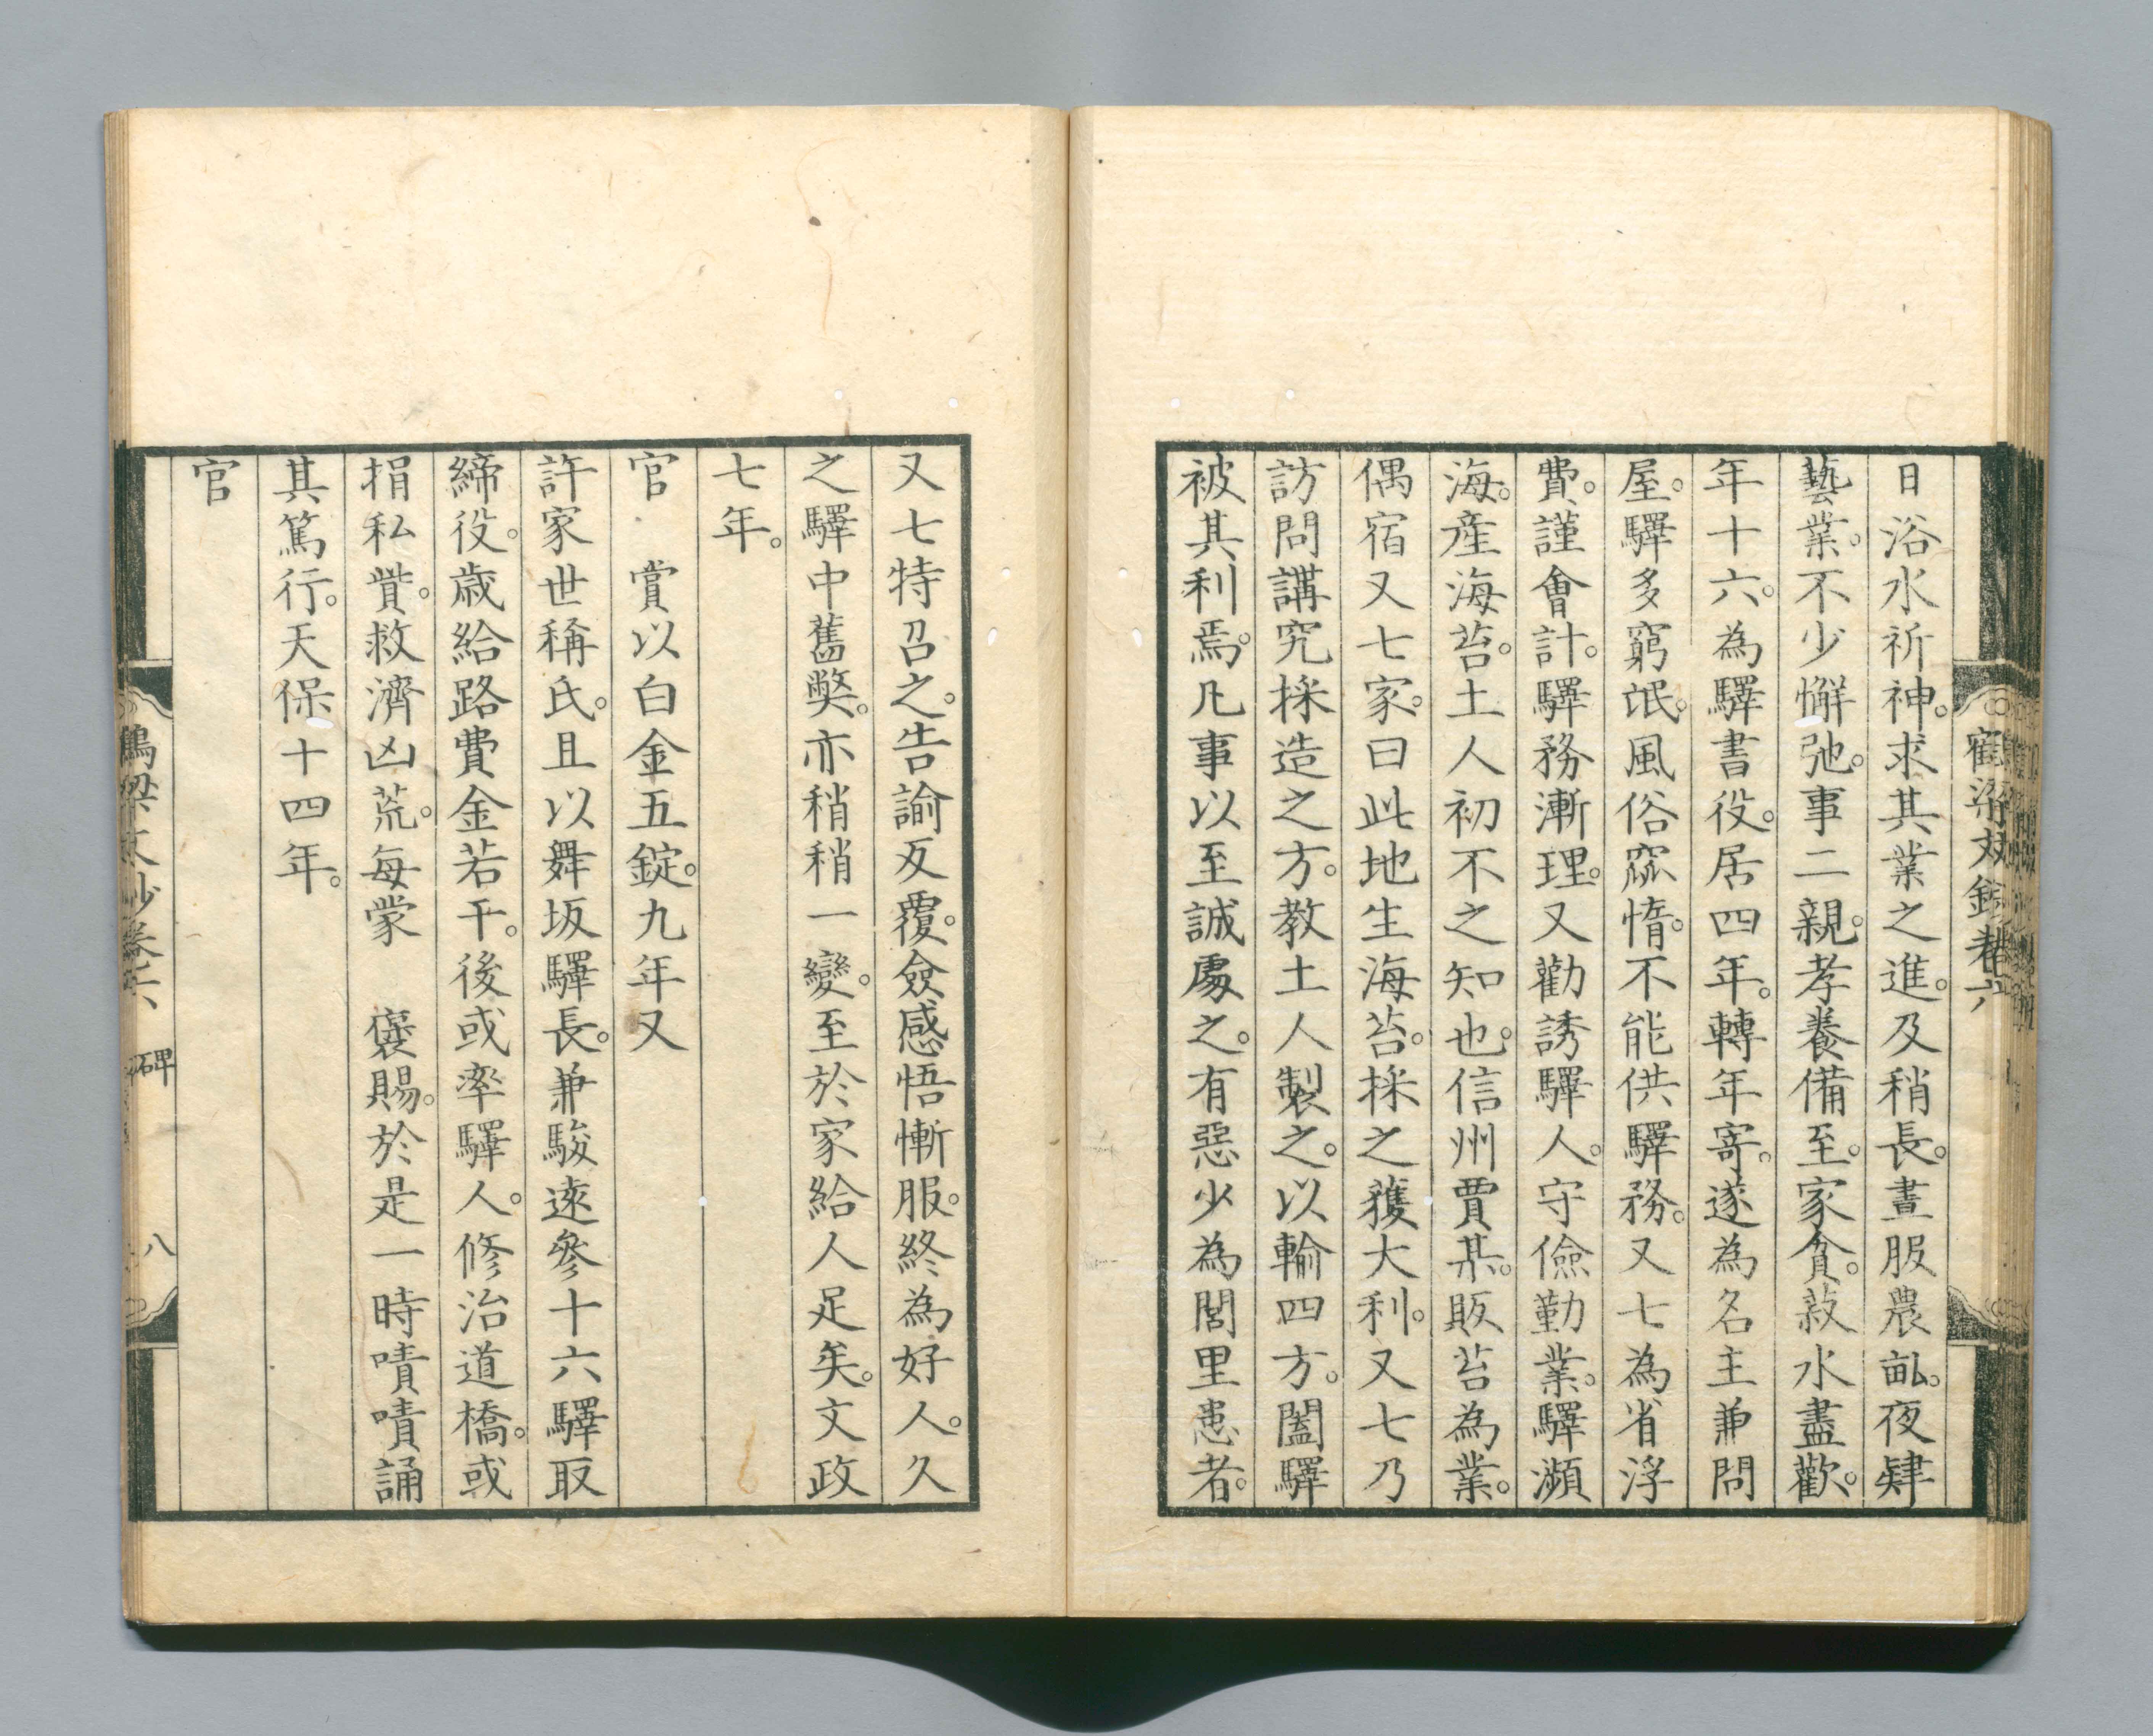 日浴水祈神。求其業之進。及稍長。晝服農畝。夜肄
藝業。不少懈弛。事二親。孝養備至。家貧。菽水盡歡。
年十六。為驛書役。居四年。轉年寄。遂為名主兼問
屋。驛多窮氓。風俗窳惰。不能供驛務。又七為省浮
費。謹會計。驛務漸理。又勸誘驛人。守儉勤業。驛瀕
海。產海苔。土人初不之知也。信州賈某。販苔為業。
偶宿又七家。曰此地生海苔。採之獲大利。又七乃
訪問講究採造之方。教土人製之。以輸四方。闔驛
被其利焉。凡事以至誠處之。有惡少為閭里患者。
又七特召之。告諭反覆。僉感悟慚服。終為好人。久
之驛中舊獘。亦稍稍一變。至於家給人足矣。文政
七年。
官　賞以白金五錠。九年又
許家世稱氏。且以舞坂驛長。兼駿遠參十六驛取
締役。歲給路費金若干。後或率驛人。修治道橋。或
捐私貲。救濟凶荒。每蒙　褒賜。於是一時嘖嘖誦
其篤行。天保十四年。
官
鶴梁文鈔卷六　碑　八